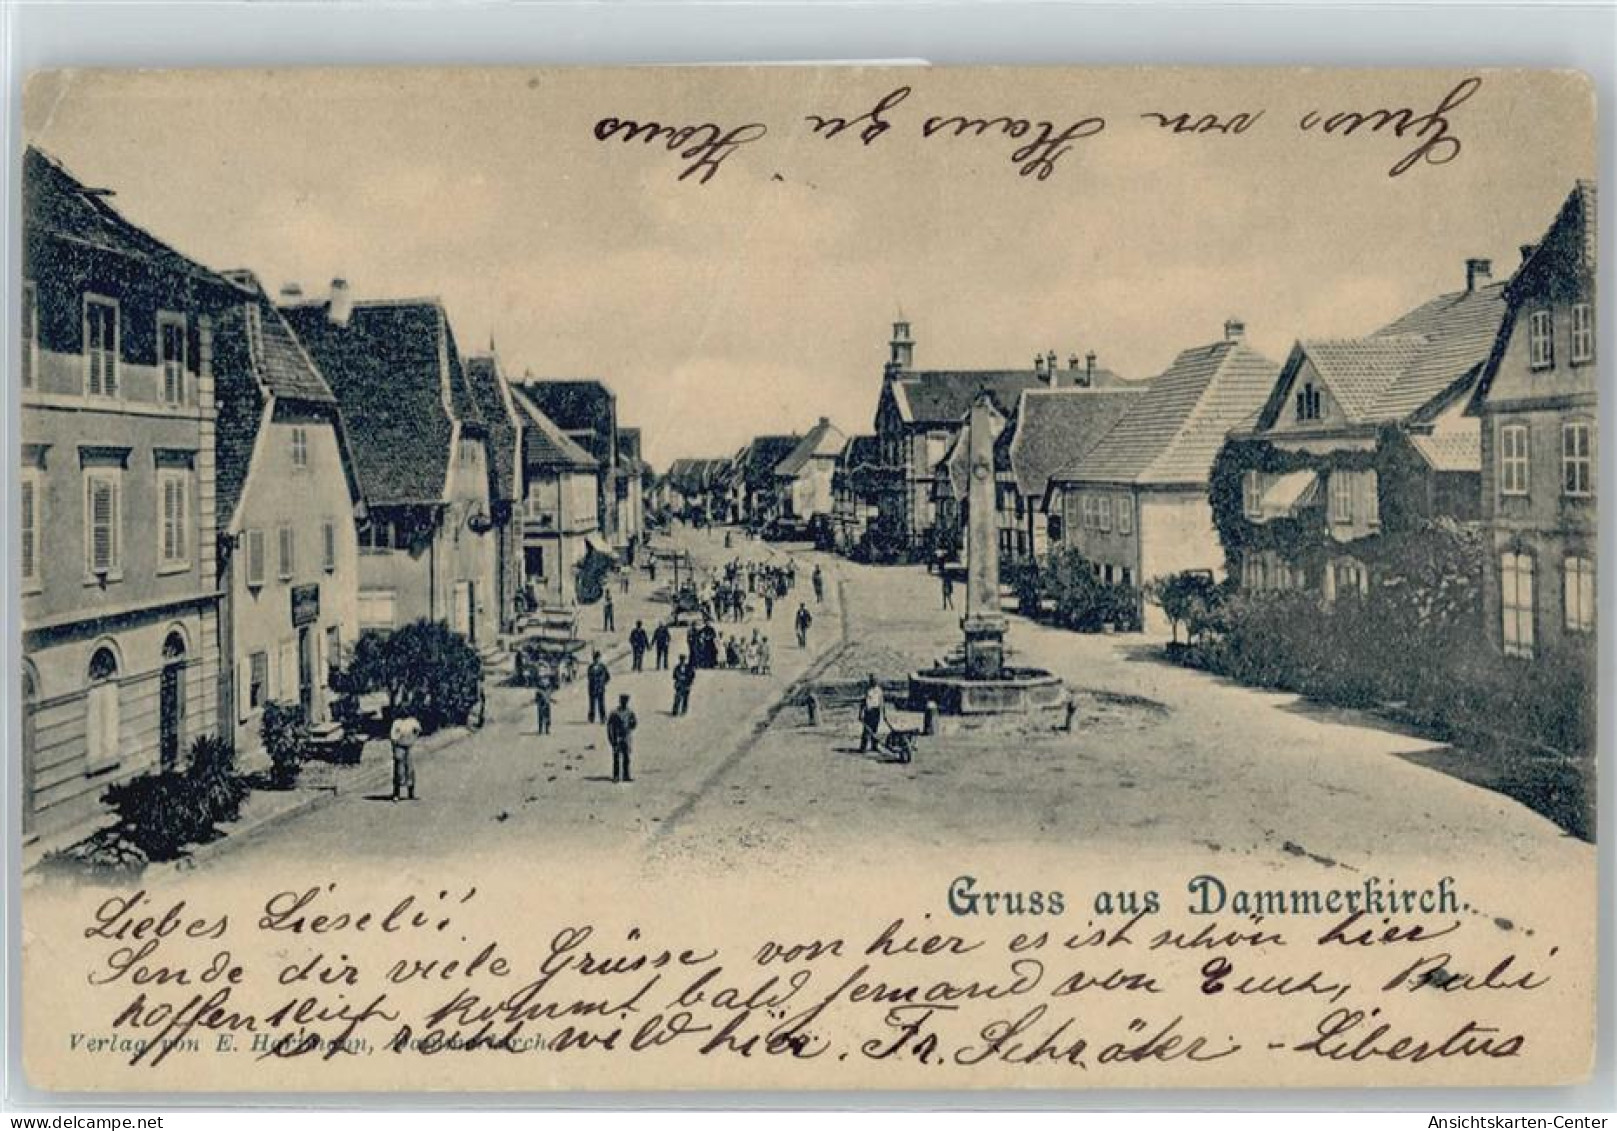 Gruss von Haus zu Haus
Gruss aus Dammerkirch.
Liebes Lieseli!
Sende dir viele Grüsse von hier es ist schön hier
hoffentlich kommt bald Jemand von Euch, Bubi
ist recht wild hier. Fr. Schröter - Libertus
Verlag von E. Hartmann, Dammerkirch.
Ansichtskarten-Center